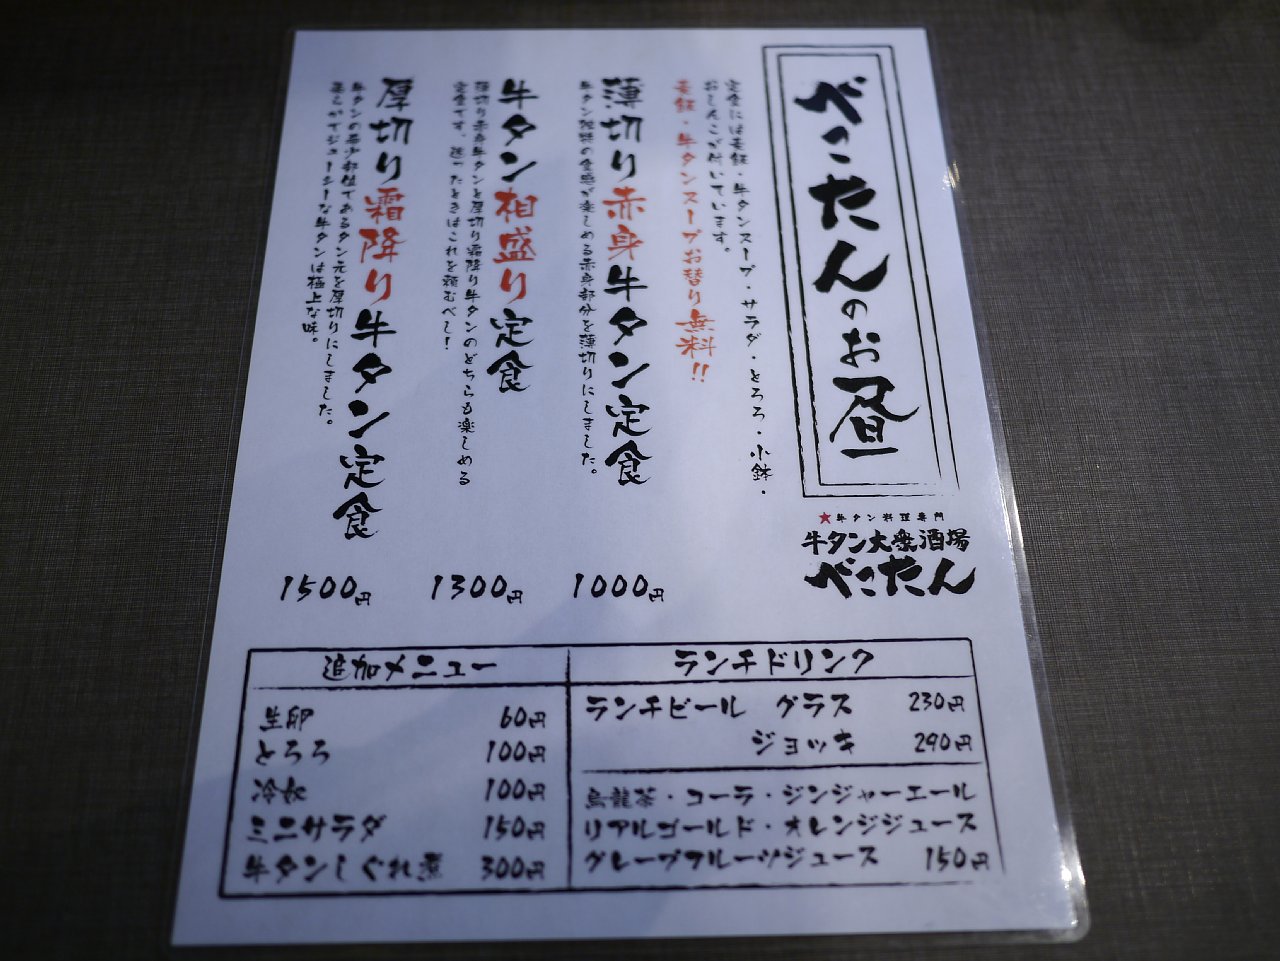 べこたんのお昼
★牛タン料理専門
牛タン大衆酒場
べこたん
定食には麦飯・牛タンスープ・サラダ・とろろ・小鉢・
おしんこが付いています。
麦飯・牛タンスープお替り無料!!
薄切り赤身牛タン定食
牛タン独特の食感が楽しめる赤身部分を薄切りにしました。
1000円
牛タン相盛り定食
薄切り赤身牛タンと厚切り霜降り牛タンのどちらも楽しめる
定食です。迷ったときはこれを頼むべし!
1300円
厚切り霜降り牛タン定食
牛タンの希少部位であるタン元を厚切りにしました。
柔らかでジューシーな牛タンは極上な味。
1500円
追加メニュー
生卵 60円
とろろ 100円
冷奴 100円
ミニサラダ 150円
牛タンしぐれ煮 300円
ランチドリンク
ランチビール グラス 230円
ジョッキ 290円
烏龍茶・コーラ・ジンジャーエール
リアルゴールド・オレンジジュース
グレープフルーツジュース 150円